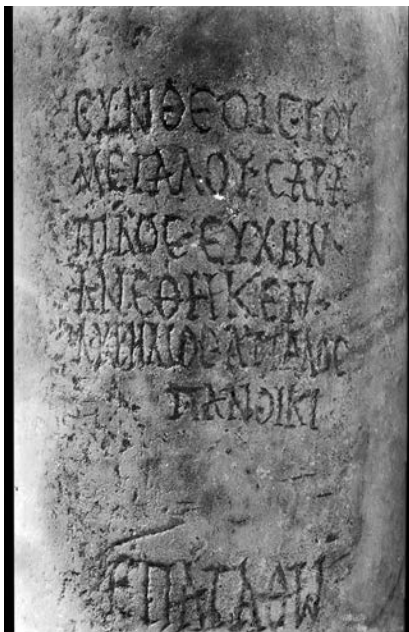 CΥΝΘΕΟΙC·ΤΟΥ
ΜΕΓΑΛΟΥ·CΑΡΑ
ΠΙΔΟC·ΕΥΧΗΝ·
ΑΝΕΘΗΚΕΝ·
ΑΥΡΗΛΙΟC·ΑΤΤΑΛΟC
ΠΑΝΟΙΚΙ
ΕΠΑΓΑΘΩ